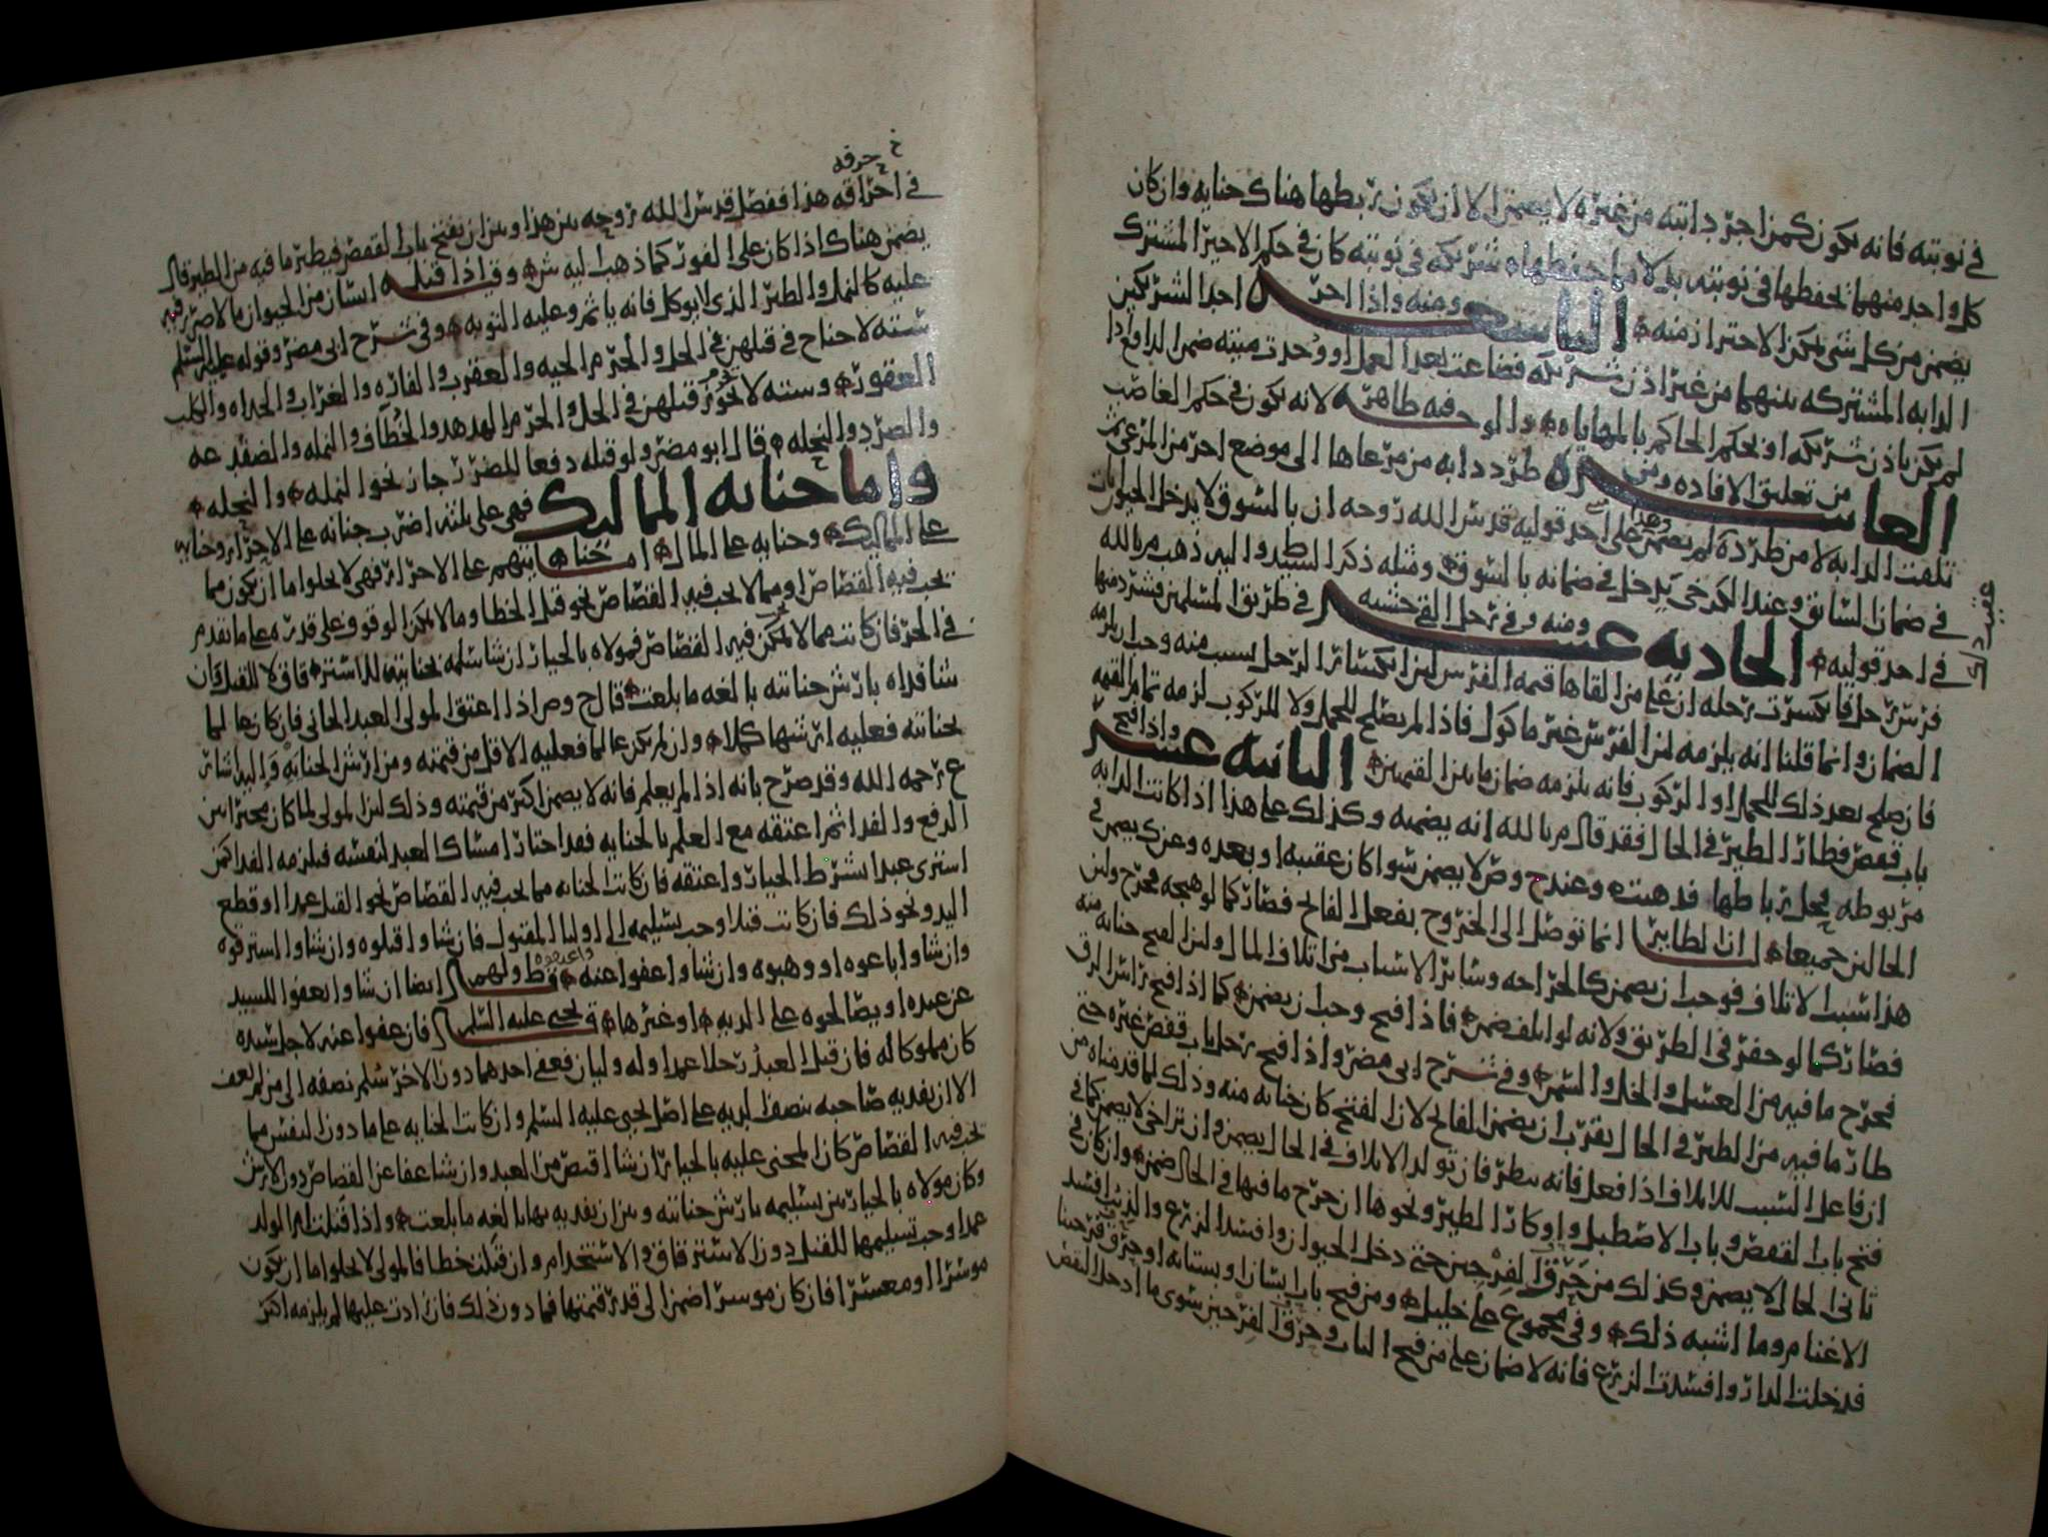 في نوبته فانه يكون كمن اجر دابته من غيره لا يضمن الا ان يكون ربطها هناك جنايه وان كان
كل واحد منهما يحفظها في نوبته بدلا مما حفظها شريكه في نوبته كان في حكم الاجير المشترك
يضمن من كل شي يمكن الاحتراز منه التاسعه ومنه واذا اجر احد الشريكين
الدابه المشتركه بينهما من غير اذن شريكه فضاعت بعد العمل او وجدت ميته ضمن الدافع اذا
لم يكن باذن شريكه او بحكم الحاكم بالمهاياه والوجه فيه ظاهر لانه يكون في حكم الغاصب
العاشره من تعليق الافاده ومن طرد دابه من مرعاها الى موضع اخر من المرعى ثم
تلفت الدابه لا من طرده لم يضمن وهذا على احد قوليه قدس الله روحه ان بالسوق لا يدخل الحيوان
في ضمان السائق وعند الكرخي يدخل في ضمانه بالسوق ومثله ذكر السيد واليه ذهب م بالله
في احد قوليه الحاديه عشر ومنه وفي رجل القى خشبه في طريق المسلمين فشرد منها
فرس رجل فانكسرت رجله ان على من القاها قيمه الفرس لان انكسار الرجل بسبب منه وجب ان يلزمه
الضمان وانما قلنا انه يلزمه لان الفرس غير ماكول فاذا لم يصلح للحمل ولا للركوب لزمه تمام القيمه
فان صلح بعد ذلك للحمل او الركوب فانه يلزمه ضمان ما بين القيمتين الثانيه عشر واذا فتح
باب قفص فطار الطير في الحال فقد قال م بالله انه يضمنه وكذلك على هذا اذا كانت الدابه
مربوطه فحل رباطها فذهبت وعند ح وص لا يضمن سوا كان عقيبه او بعده وعند ك يضمن في
الحالين جميعا لان الطاير انما توصل الى الخروج بفعل الفاتح فصار كما لو هيجه فخرج ولان
هذا سبب الاتلاف فوجب ان يضمن كالجراحه وسائر الاسباب من اتلاف المال ولان الفتح جنايه منه
فصار كما لو حفر في الطريق ولانه لو اتلف ضمن فاذا فتح وجب ان يضمن كما اذا فتح راس الزق
فخرج ما فيه من العسل والخل والسمن وفي شرح ابي مضر واذا فتح رجل باب قفص غيره حتى
طار ما فيه من الطير في الحال يقرب ان يضمن الفاتح لان الفتح كان جنايه منه وذلك لما قدمناه من
ان فاعل السبب للاتلاف اذا فعل فانه ينظر فان تولد الاتلاف في الحال يضمن وان تراخى لا يضمن كما في
فتح باب القفص وباب الاصطبل واوكار الطير ونحوها ان خرج ما فيها في الحال ضمن وان كان في
ثاني الحال لا يضمن وكذلك من خرق الفرجين حتى دخل الحيوان وافسد الزرع والذي افسد
الاغنام وما اشبه ذلك وفي مجموع علي خليل ومن فتح باب انسان او بستانه او خرق فرجينا
فدخلت الدار وافسدت الزرع فانه لا ضمان على من فتح الباب وخرق الفرجين سوى ما ادخل النقص
خ حرقه
في احراقه هذا ففصل قدس الله روحه بين هذا وبين ان يفتح باب القفص فيطير ما فيه من الطير قال
يضمن هناك اذا كان على الفور كما ذهب اليه ش وق اذا قتل انسان من الحيوان ما لا ضرر فيه
عليه كالنمل والطير الذي لا يوكل فانه ياثم وعليه التوبه وفي شرح ابي مضر وقوله عليه السلم
سته لا جناح في قتلهن في الحل والحرم الحيه والعقرب والفاره والغراب والحداه والكلب
العقور وسته لا يجوز قتلهن في الحل والحرم الهدهد والخطاف والنمله والضفدعه
والصرد والنحله قال ابو مضر ولو قتله دفعا للضرر جاز نحو النمله والنحله
واما جنايه المماليك فهي على ثلثه اضرب جنايه على الاحرار وجنايه
على المماليك وجنايه على المال اما جنايتهم على الاحرار فهي لا يخلوا اما ان يكون مما
يجب فيه القصاص او مما لا يجب فيه القصاص نحو قتل الخطا وما لا يمكن الوقوف على قدره على ما تقدم
في الحر فان كانت مما لا يمكن فيه القصاص فمولاه بالخيار ان شا سلمه بجنايته للاسترقاق لا للقتل وان
شا فداه بارش جنايته بالغه ما بلغت قال ح وص اذا اعتق المولى العبد الجاني فان كان عالما
بجنايته فعليه ارشها كملا وان لم يكن عالما فعليه الاقل من قيمته ومن ارش الجنايه واليه اشار
ع رحمه الله وقد صرح بانه اذا لم يعلم فانه لا يضمن اكثر من قيمته وذلك لان المولى لما كان مخيرا بين
الدفع والفدا ثم اعتقه مع العلم بالجنايه فقد اختار امساك العبد لنفسه فيلزمه الفدا كمن
اشترى عبدا بشرط الخيار واعتقه فان كانت الجنايه مما يجب فيه القصاص نحو القتل عمدا او قطع
اليد ونحو ذلك فان كانت قتلا وجب تسليمه الى اوليا المقتول فان شاوا قتلوه وان شاوا استرقوه
وان شاوا باعوه او وهبوه وان شاوا عفوا عنه ق ط ولهم ايضا ان شاوا يعفوا للسيد
عن عبده او يصالحوه على الديه او غيرها ق يحيى عليه السلم فان عفوا عنه لاجل سيده
كان مملوكا له فان قتل العبد رجلا عمدا وله وليان فعفى احدهما دون الاخر سلم نصفه الى من لم يعف
الا ان يفديه صاحبه بنصف الديه على اصل يحيى عليه السلم وان كانت الجنايه على ما دون النفس مما
يجب فيه القصاص كان المجني عليه بالخيار ان شا اقتص من العبد وان شا عفا عن القصاص دون الارش
وكان مولاه بالخيار بين تسليمه بارش جنايته وبين ان يفديه بها بالغه ما بلغت واذا قتلت ام الولد
عمدا وجب تسليمها للقتل دون الاسترقاق والاستخدام وان قتلت خطا فالمولى لا يخلوا اما ان يكون
موسرا او معسرا فان كان موسرا ضمن الى قدر قيمتها فما دون ذلك فان زادت عليها لم يلزمه اكثر